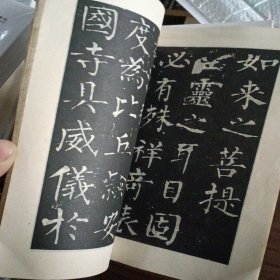 如來之菩提
生靈之耳目固
必有殊祥奇表
度為比丘隸安
國寺具威儀於